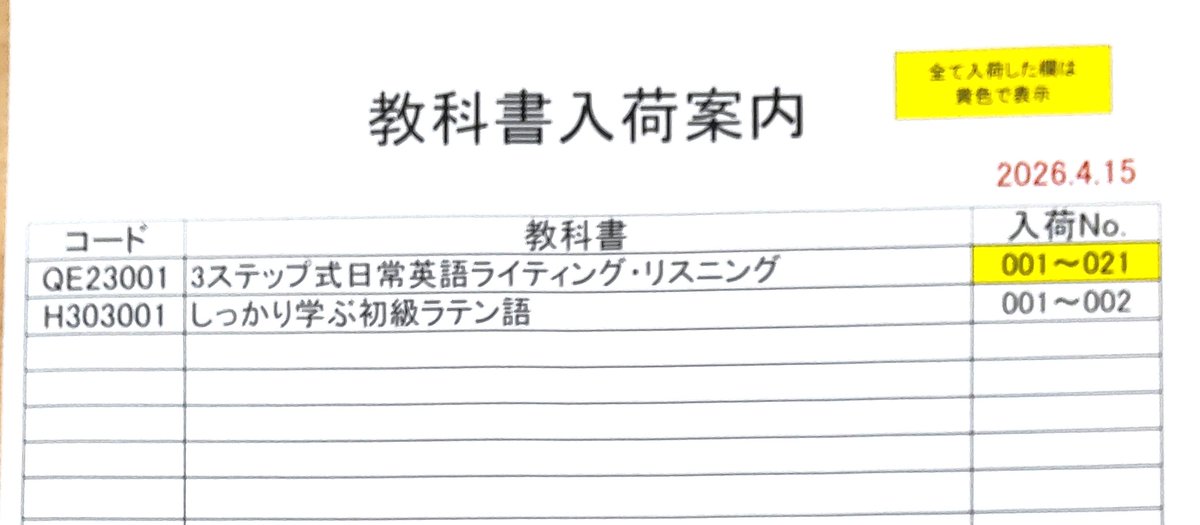 全て入荷した欄は
黄色で表示
教科書入荷案内
2026.4.15
コード 教科書 入荷No.
QE23001 3ステップ式日常英語ライティング・リスニング 001〜021
H303001 しっかり学ぶ初級ラテン語 001〜002